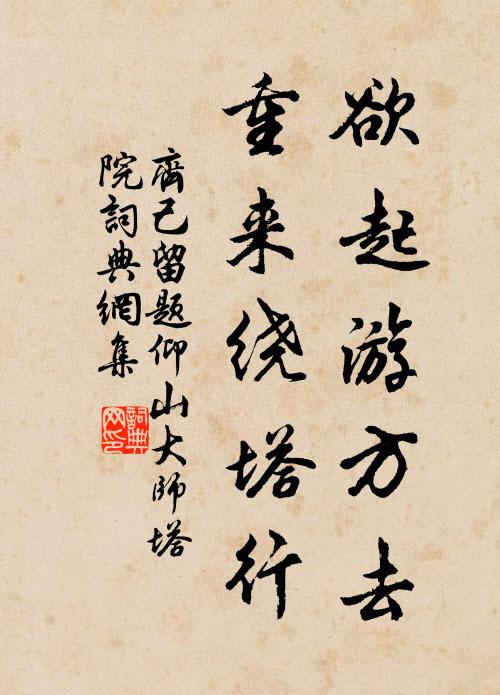 欲起游方去
重来绕塔行
齊己留題仰山大師塔
院詞典網集
詞典网印